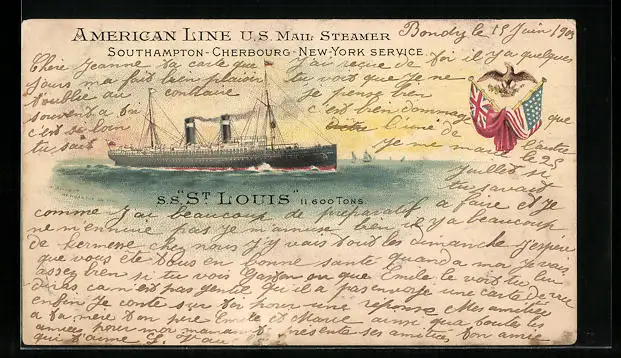 AMERICAN LINE U.S. MAIL STEAMER
Bondy le 15 Juin 1903
SOUTHAMPTON-CHERBOURG-NEW-YORK SERVICE.
Chère Jeanne ta carte que j'ai reçue de toi il y a quelques
jours ma fait bien plaisir tu voit que je ne
t'oublie au contraire je pense bien
souvent a toi c'est bien dommage que
c'est si loin l'une de l'autre
tu sait je me marie le 25
Juillet si
S.S. "ST LOUIS" 11,600 TONS.
tu savait
comme j'ai beaucoup de preparatif a faire et je
ne m'ennuie pas je m'amuse bien il y a beaucoup
de Kermesse chez nous j'y vais tout les dimanche j'espère
que vous ète tous en bonne santé quand a moi je vais
assez bien si tu vois Gaston ou que Emile le voit tu lui
diras ca n'est pas gentil qu'il a pas envoyé une carte de vue
enfin je conte sur toi pour une réponse Mes amitiées
a ta mère ton père Emile et Marie ainsi que toute les
amiées pour moi maman te présente ses amitiées ton amie
qui t'aime L.